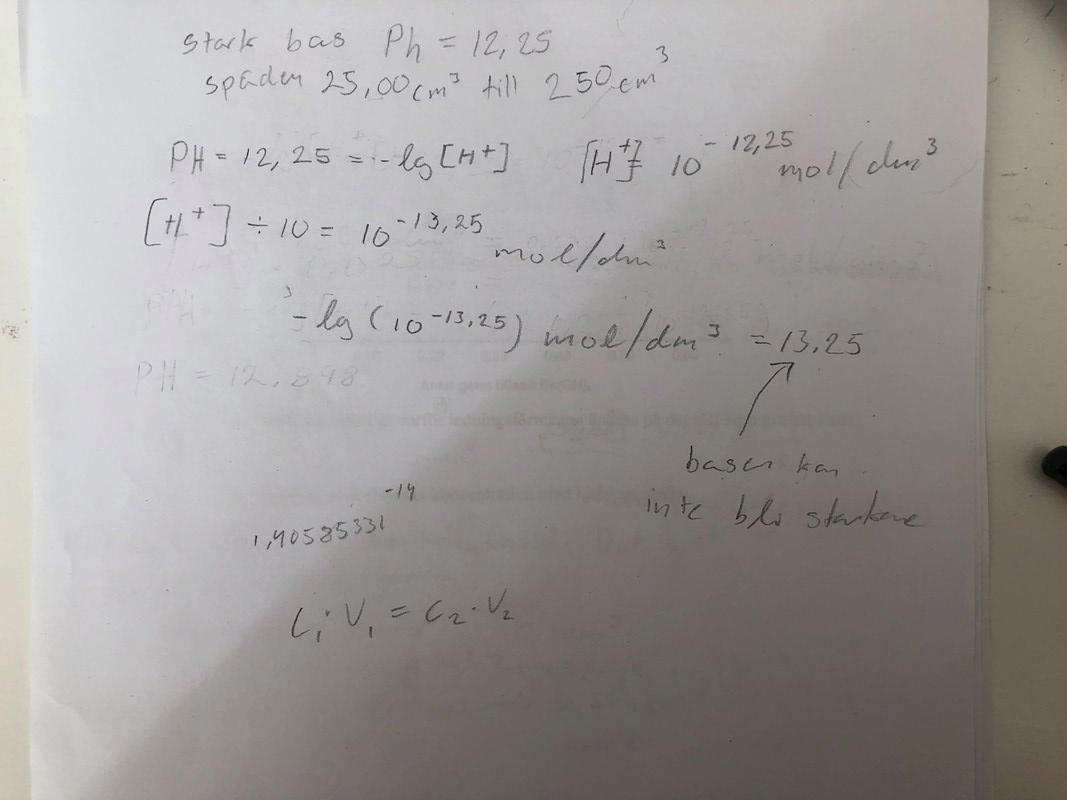 stark bas Ph = 12,25
späder 25,00 cm³ till 250 cm³
PH = 12,25 = -lg [H+] [H+] = 10^-12,25 mol/dm³
[H+] ÷ 10 = 10^-13,25 mol/dm³
-lg (10^-13,25) mol/dm³ = 13,25
PH = 12,898
basen kan
inte bli starkare
1,40585331^-14
C₁·V₁ = C₂·V₂